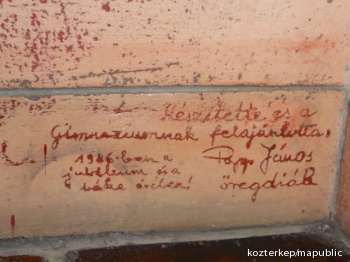 Készítette és a
Gimnáziumnak felajánlotta,
1986-ban a
jubileum és a
Papp János
öregdiák
kozterkep/mapublic